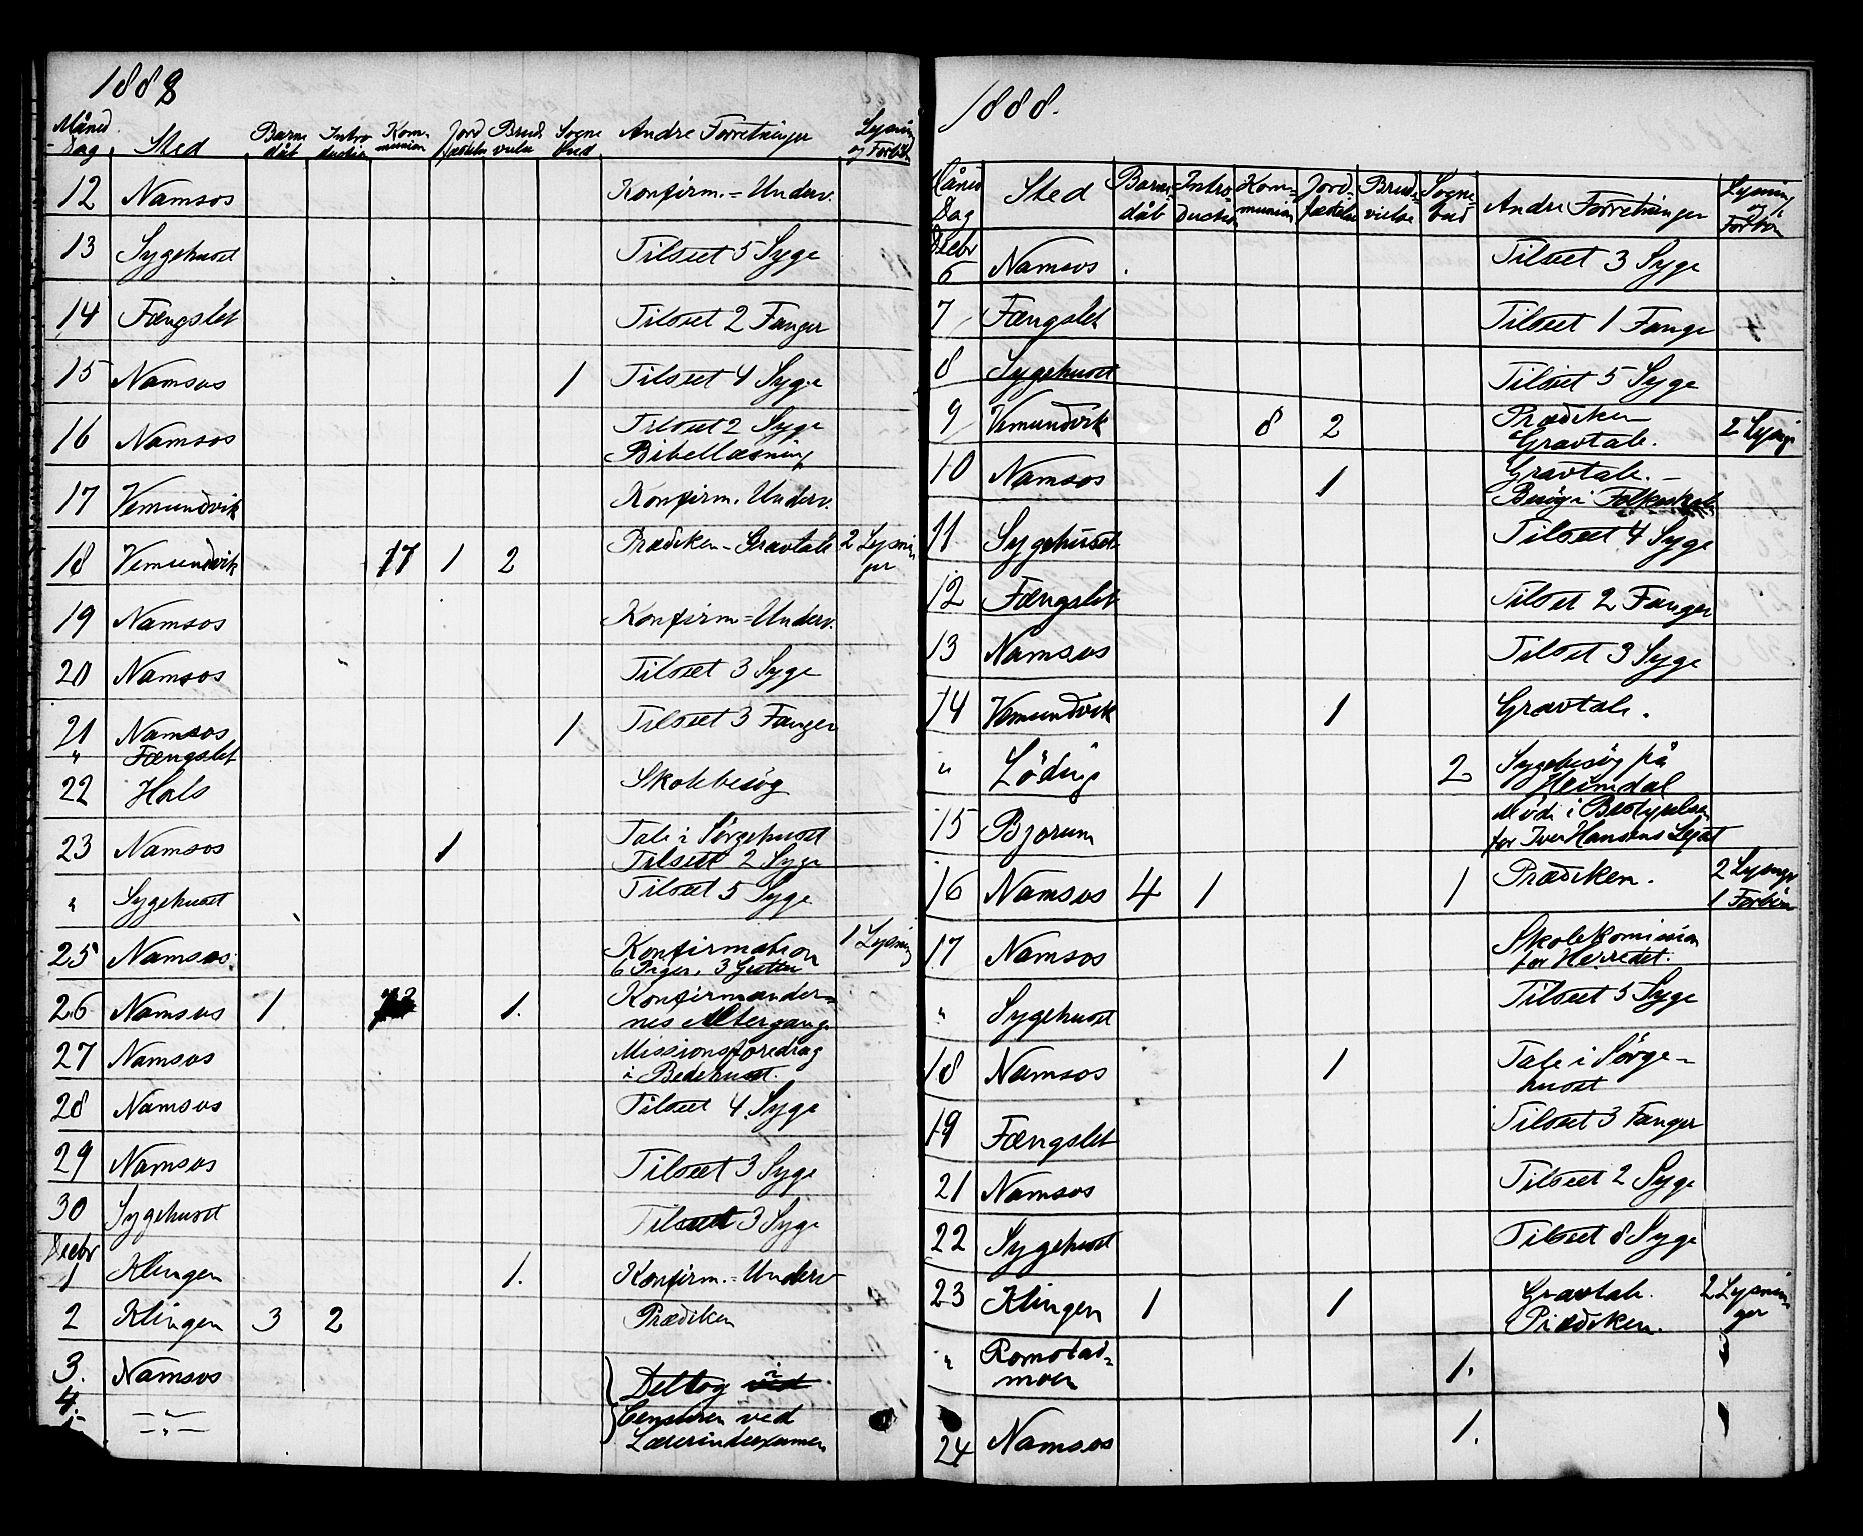 1888
Måned Dag | Sted | Barne dåb | Intro duction | Kom= munion | Jord fæstelse | Brude vielse | Sogne bud | Andre Forretninger | Lysning og Forbön
12 Namsos Konfirm.= Underv.
13 Sygehuset Tilseet 5 Syge
14 Fængslet Tilseet 2 Fanger
15 Namsos 1 Tilseet 4 Syge
16 Namsos Tilseet 2 Syge
Bibellæsning
17 Vemundvik Konfirm. Underv.
18 Vemundvik 17 1 2 Prædiken - Gravtale 2 Lysnin
ger
19 Namsos Konfirm=Underv.
20 Namsos Tilseet 3 Syge
21 Namsos 1 Tilseet 3 Fanger
" Fængslet
22 Hals Skolebesög
23 Namsos 1 Tale i Sørgehuset
Tilseet 2 Syge
" Sygehuset Tilseet 5 Syge
25 Namsos Konfirmation 1 Lysning
6 Piger, 3 Gutter
26 Namsos 1 1. Konfirmander=
nes Altergang
27 Namsos Missionsforedrag
i Bedehuset.
28 Namsos Tilseet 4 Syge
29 Namsos Tilseet 3 Syge
30 Sygehuset Tilseet 3 Syge
Decbr
1 Klingen 1. Konfirm.= Underv
2 Klingen 3 2 Prædiken
3. Namsos Deltog i
4. -"- Censuren ved
Lærerindexamen
1888.
Måned Dag | Sted | Barne dåb | Intro duction | Kom= munion | Jord= fæstelse | Brude vielse | Sogne bud | Andre Forretninger | Lysning og Forbön
Decbr
6 Namsos Tilseet 3 Syge
7 Fængslet Tilseet 1 Fange
8 Sygehuset Tilseet 5 Syge
9 Vemundvik 8 2 Prædiken 2 Lysnige
Gravtale.
10 Namsos 1 Gravtale. -
Besög i Folkeskole
11 Sygehuset Tilseet 4 Syge
12 Fængslet Tilseet 2 Fanger
13 Namsos Tilseet 3 Syge
14 Vemundvik 1 Gravtale.
" Löding 2 Sygebesög på
Heimdal
15 Bjørum Möde i Bestyrelsen
for Iver Hansens Legat
16 Namsos 4 1 1 Prædiken. 2 Lysnige
1 Forbön
17 Namsos Skolekomission
for Herredet.
" Sygehuset Tilseet 5 Syge
18 Namsos 1 Tale i Sörge=
huset
19 Fængslet Tilseet 3 Fanger
21 Namsos Tilseet 2 Syge
22 Sygehuset Tilseet 8 Syge
23 Klingen 1 1 Gravtale. 2 Lysnin
Prædiken. ger
" Romstad=
moen 1.
24 Namsos 1.